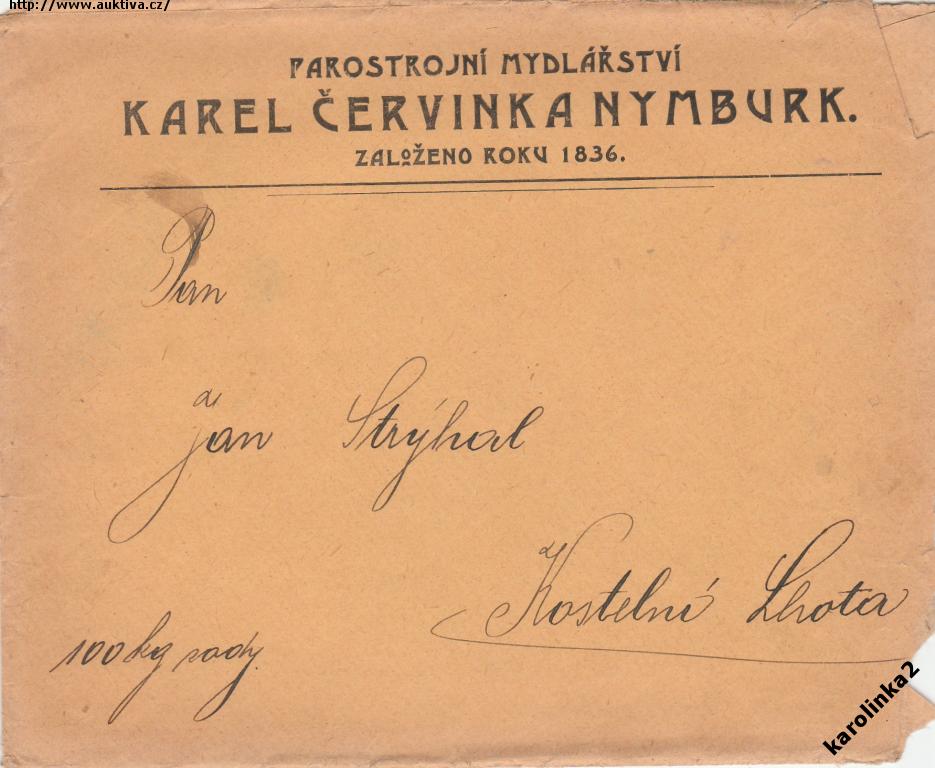 http://www.auktiva.cz/
PAROSTROJNÍ MYDLÁŘSTVÍ
KAREL ČERVINKA NYMBURK.
ZALOŽENO ROKU 1836.
Pan
Jan Strýhal
Kostelní Lhota
100 kg sody.
karolinka2